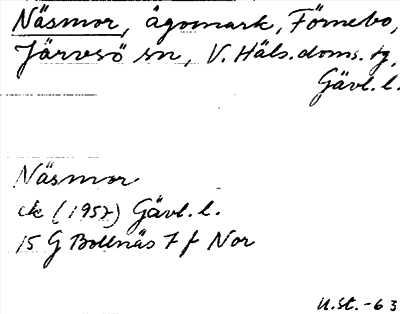 Näsmor, ägomark, Förnebo,
Järvsö sn, V. Häls. doms. tg,
Gävl. l.
Näsmor
ek (1957) Gävl. l.
15 G Bollnäs 7 f Nor
U.St.-63